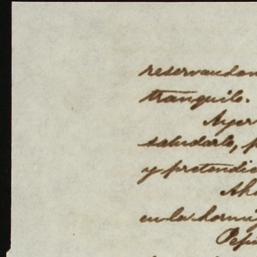 reservandon
tranquilo.
Ayer
saludarle, p
y pretendio
Aho
en la hormig
Pepi